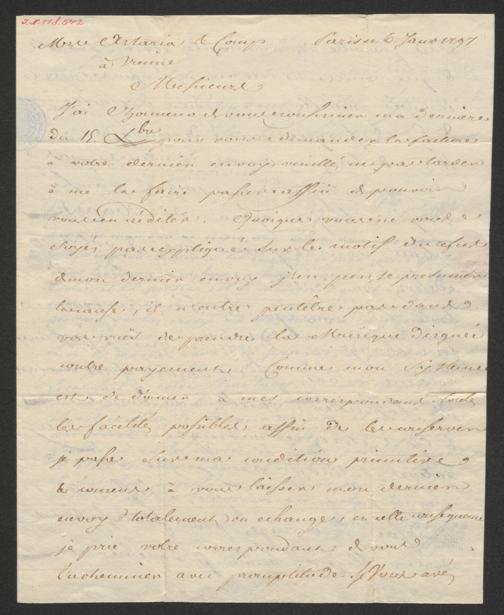 Mrs Artaria & Comp Paris ce 6 Janv 1797
à Vienne
Messieurs
J'ai l'honneur de vous confirmer ma dernière
du 15. Xbre pour vous demander la facture
à votre dernier envoy veuillé ne pas tarder
à me la faire passer affin de pouvoir
vous en créditer. Quoique vous ne vous
soyés pas expliqués sur le motif du refus
de mon dernier envoy j'en pense presumer
la cause, il n'entre peutêtre pas dans
vos vuës de prendre la Musique d'ici
contre payement. Comme mon Système
est de donner à mes correspondans toute
les facilités possibles affin de les conserver
je passe sur ma condition primitive
& consens à vous laisser mon dernier
envoy totalement en echange, en consequence
je prie votre correspondant de vous
l'acheminer avec promptitude. Si Vous avés